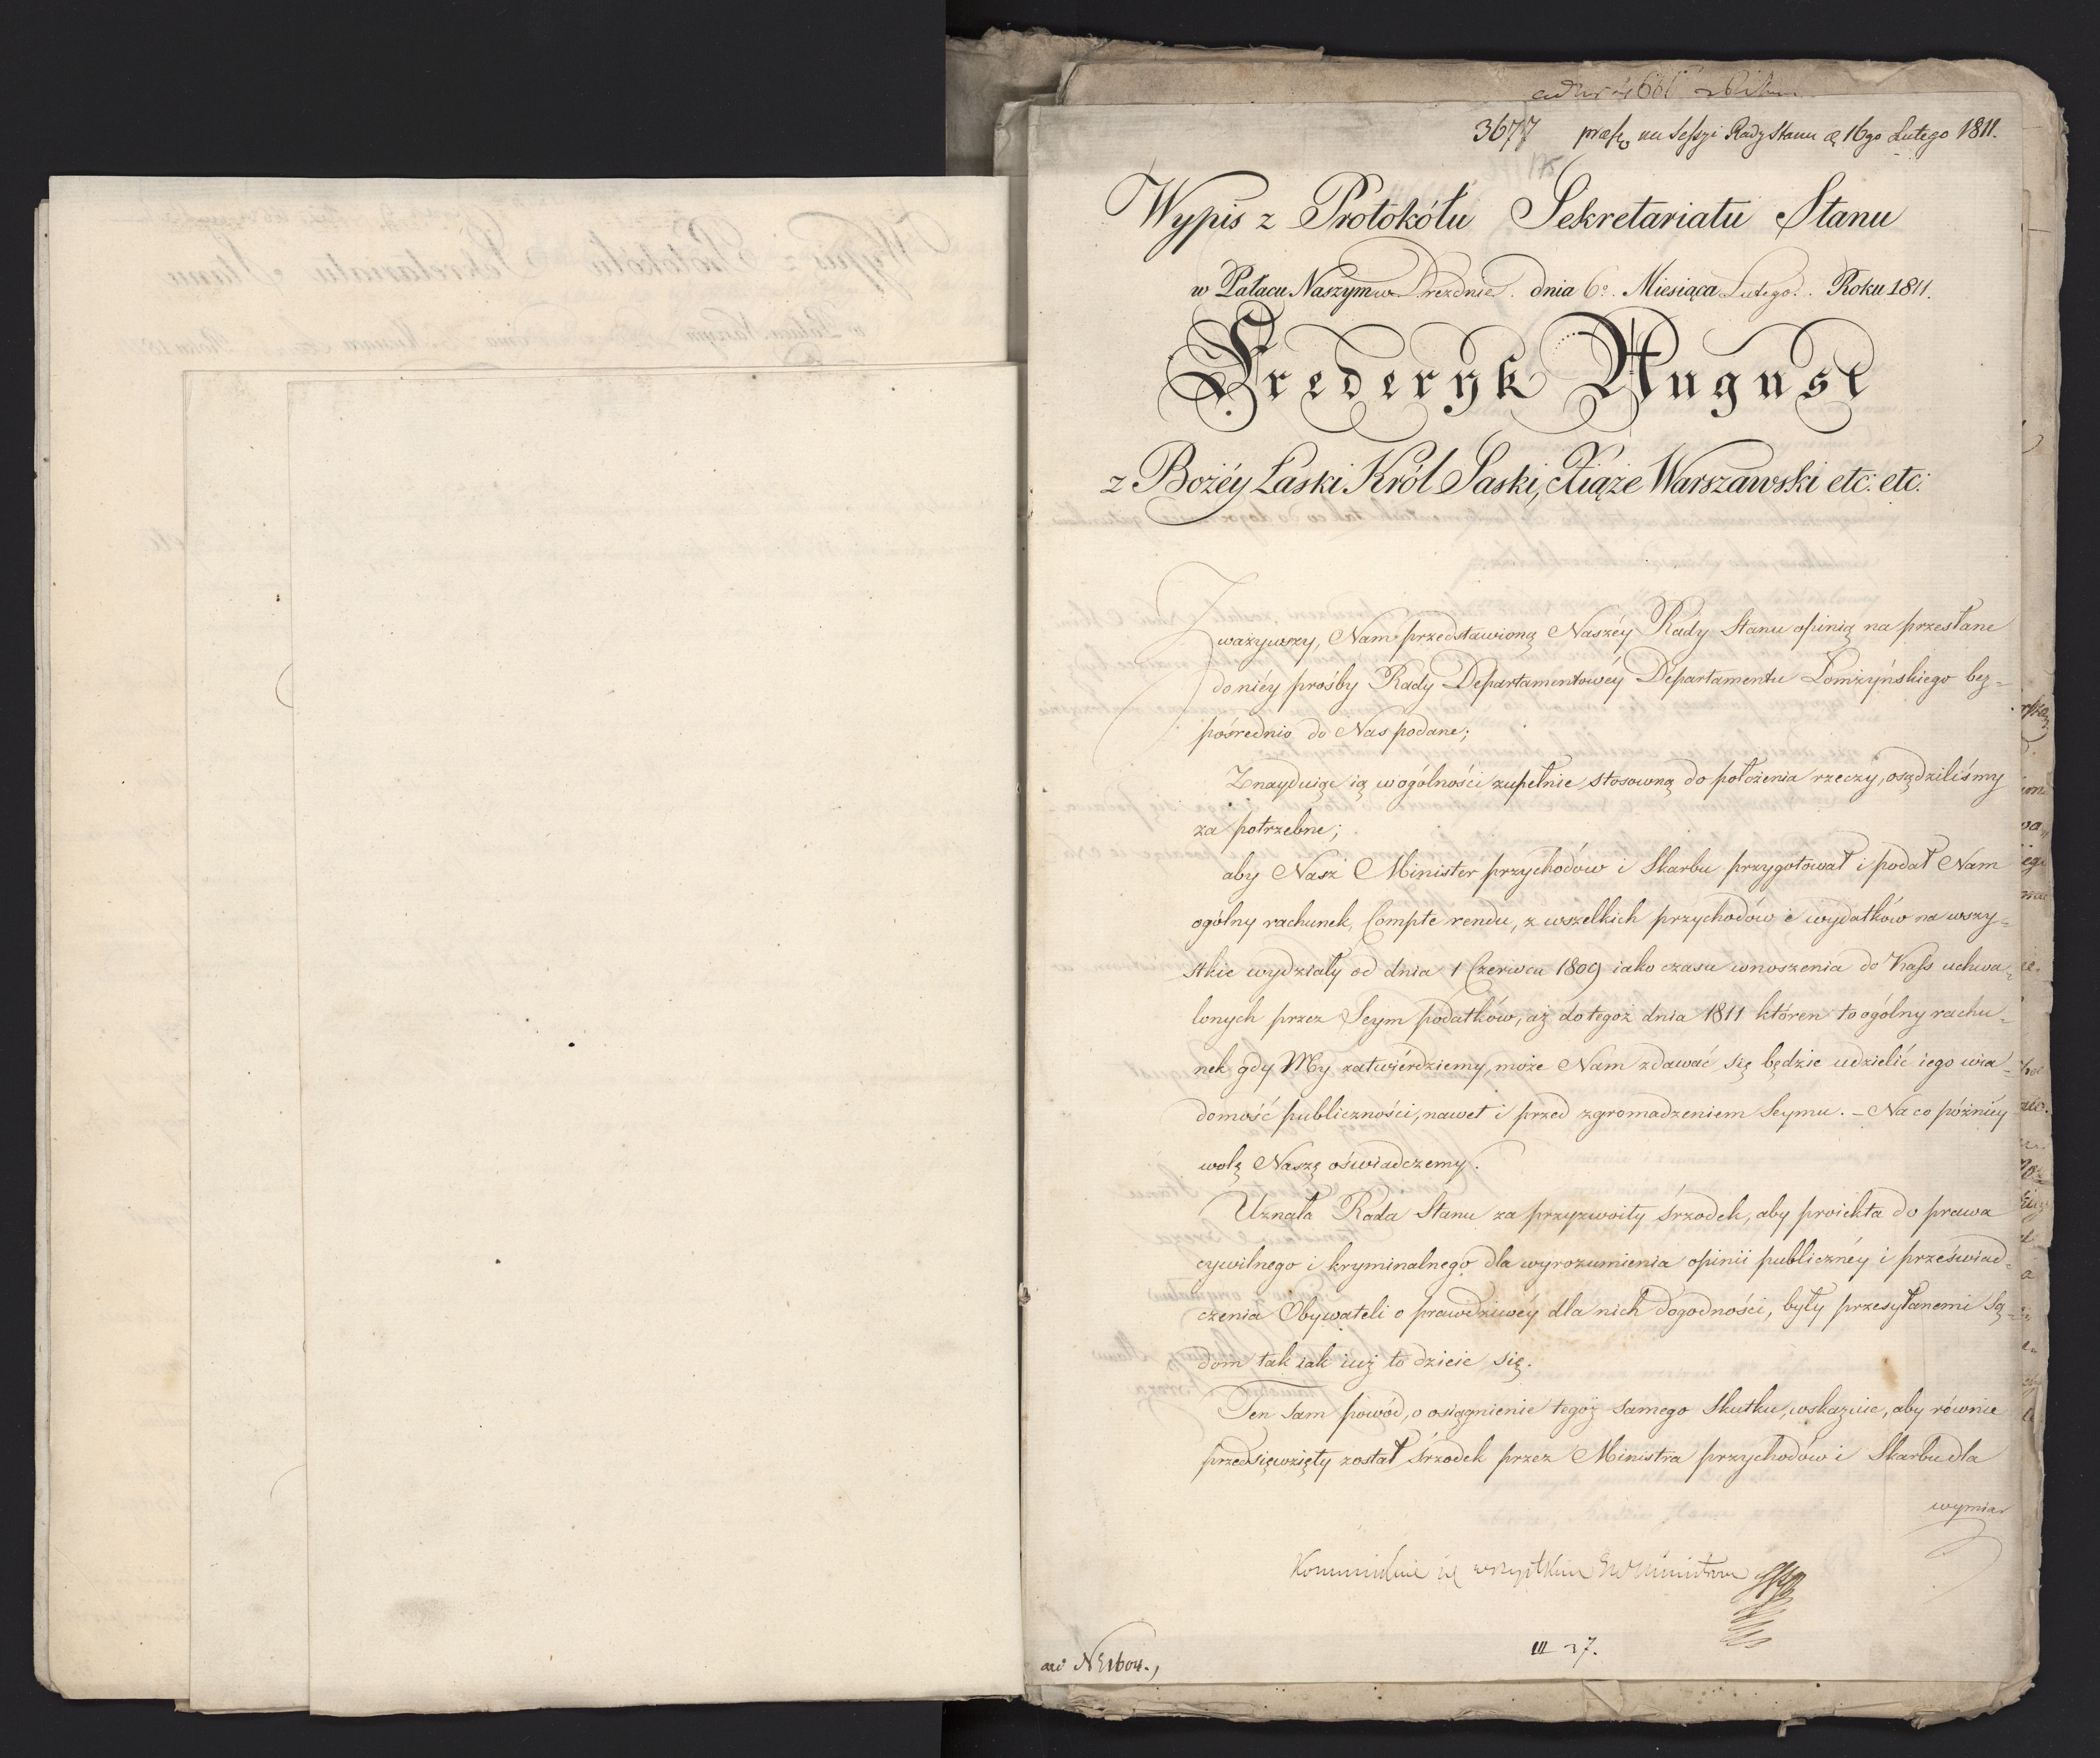 3677 præs. na Sessyi Rady Stanu d. 16go Lutego 1811.
Wypis z Protokółu Sekretariatu Stanu
w Pałacu Naszym w Dreznie dnia 6o. Miesiąca Lutego. Roku 1811.
Frederyk August
z Bożéy Łaski Król Saski, Xiąże Warszawski etc: etc:
Zważywszy, Nam przedstawioną Naszéy Rady Stanu opinią na przesłane
do niéy prośby Rady Departamentowéy Departamentu Łomżyńskiego bez=
pośrednio do Nas podane;
Znayduiąc ią w ogólności zupełnie stosowną do położenia rzeczy, osądziliśmy
za potrzebne;
aby Nasz Minister przychodów i Skarbu przygotował i podał Nam
ogólny rachunek, Compte rendu, z wszelkich przychodów i wydatków na wszy=
stkie wydziały od dnia 1 Czerwca 1809 iako czasu wnoszenia do Kass uchwa=
lonych przez Seym podatków, aż do tegoż dnia 1811 któren to ogólny rachu=
nek gdy My zatwiérdziemy, może Nam zdawać się będzie udzielić iego wia=
domość publiczności, nawet i przed zgromadzeniem Seymu. – Na co późniéy
wolę Naszę oświadczemy.
Uznała Rada Stanu za przyzwoity śrzodek, aby proiekta do prawa
cywilnego i kryminalnego dla wyrozumienia opinii publicznéy i przeświad=
czenia Obywateli o prawdziwéy dla nich dogodności, były przesyłanemi Są=
dom tak iak iuż to dzieie się.
Ten sam powód, o osiągnienie tegoż samego Skutku, wskazuie, aby równie
przedsięwzięty został śrzodek przez Ministra przychodów i Skarbu dla
wymiar
się wszystkim Ministrom
III 37.
ad N 1604.